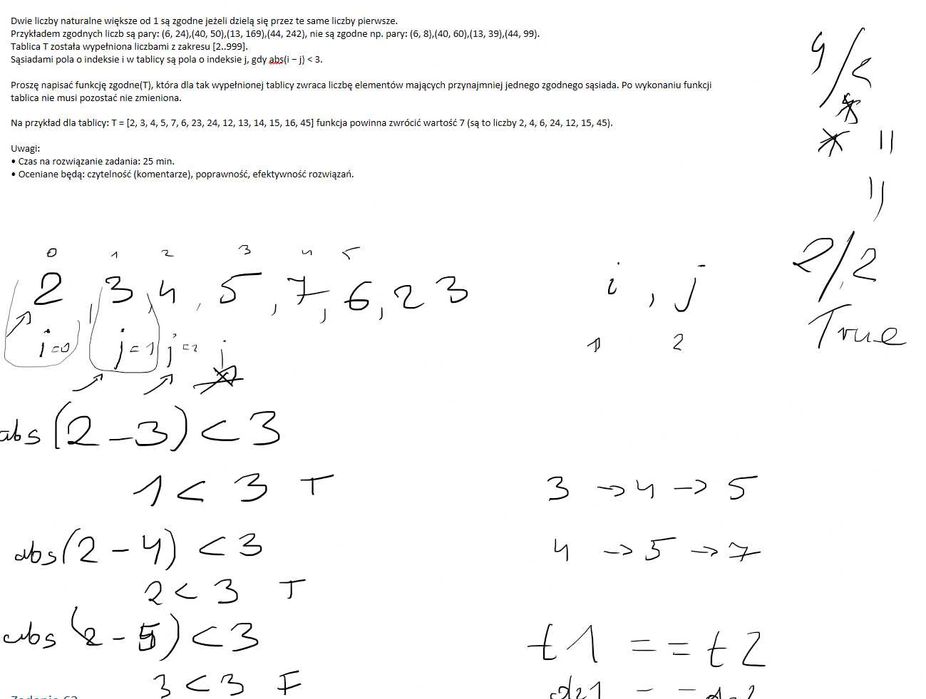 Dwie liczby naturalne większe od 1 są zgodne jeżeli dzielą się przez te same liczby pierwsze.
Przykładem zgodnych liczb są pary: (6, 24),(40, 50),(13, 169),(44, 242), nie są zgodne np. pary: (6, 8),(40, 60),(13, 39),(44, 99).
Tablica T została wypełniona liczbami z zakresu [2..999].
Sąsiadami pola o indeksie i w tablicy są pola o indeksie j, gdy abs(i – j) < 3.
Proszę napisać funkcję zgodne(T), która dla tak wypełnionej tablicy zwraca liczbę elementów mających przynajmniej jednego zgodnego sąsiada. Po wykonaniu funkcji
tablica nie musi pozostać nie zmieniona.
Na przykład dla tablicy: T = [2, 3, 4, 5, 7, 6, 23, 24, 12, 13, 14, 15, 16, 45] funkcja powinna zwrócić wartość 7 (są to liczby 2, 4, 6, 24, 12, 15, 45).
Uwagi:
• Czas na rozwiązanie zadania: 25 min.
• Oceniane będą: czytelność (komentarze), poprawność, efektywność rozwiązań.
0 1 2 3 4 5
2, 3, 4, 5, 7, 6, 23
i=0 j=1 j=2 j
i, j
1 2
2/2
True
abs(2-3)<3
1<3 T
3 -> 4 -> 5
abs(2-4)<3
4 -> 5 -> 7
2<3 T
abs(2-5)<3
t1 == t2
3<3 F